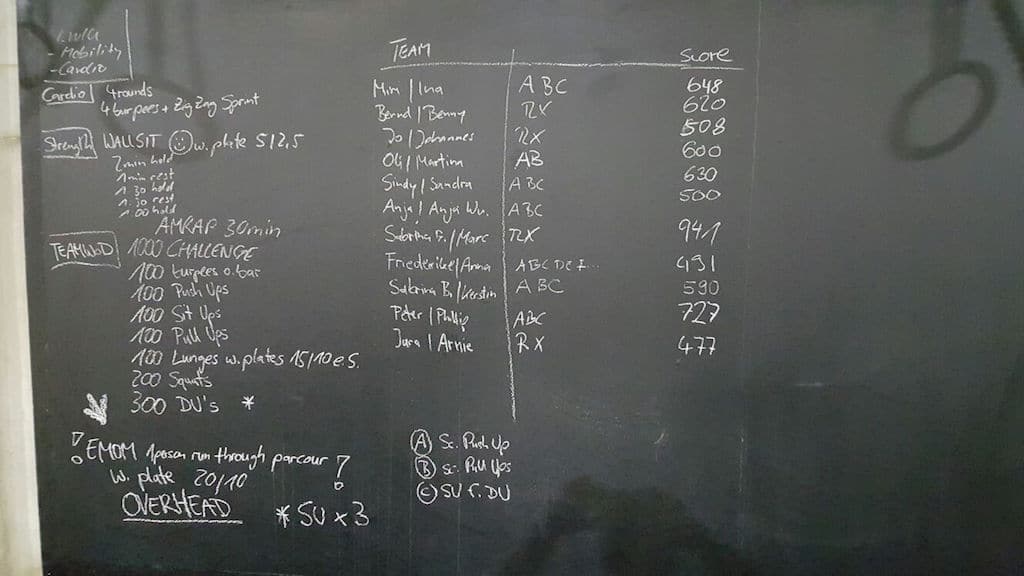 - Mobility
- Cardio
Cardio 4 rounds
4 burpees + Zig Zag Sprint
Strength WALLSIT w. plate 5/2,5
2 min hold
1 min rest
1:30 hold
1:30 rest
1:00 hold
AMRAP 30min
TEAMWOD 1000 CHALLENGE
100 burpees o. bar
100 Push Ups
100 Sit Ups
100 Pull Ups
100 Lunges w. plates 15/10 e.S.
200 Squats
300 DU's *
! EMOM 1person run through parcour !
w. plate 20/10
OVERHEAD
* SU x 3
TEAM Score
Miri / Ina ABC 648
Bernd / Benny RX 620
Jo / Johannes RX 508
Oli / Martina AB 600
Sindy / Sandra ABC 630
Anja / Anja Wu. ABC 500
Sabrina F. / Marc RX 941
Friederike / Anna ABC DEF... 491
Sabrina B. / Kerstin ABC 590
Peter / Phillip ABC 727
Jara / Arnie RX 477
(A) Sc. Push Up
(B) Sc. Pull Ups
(C) SU f. DU